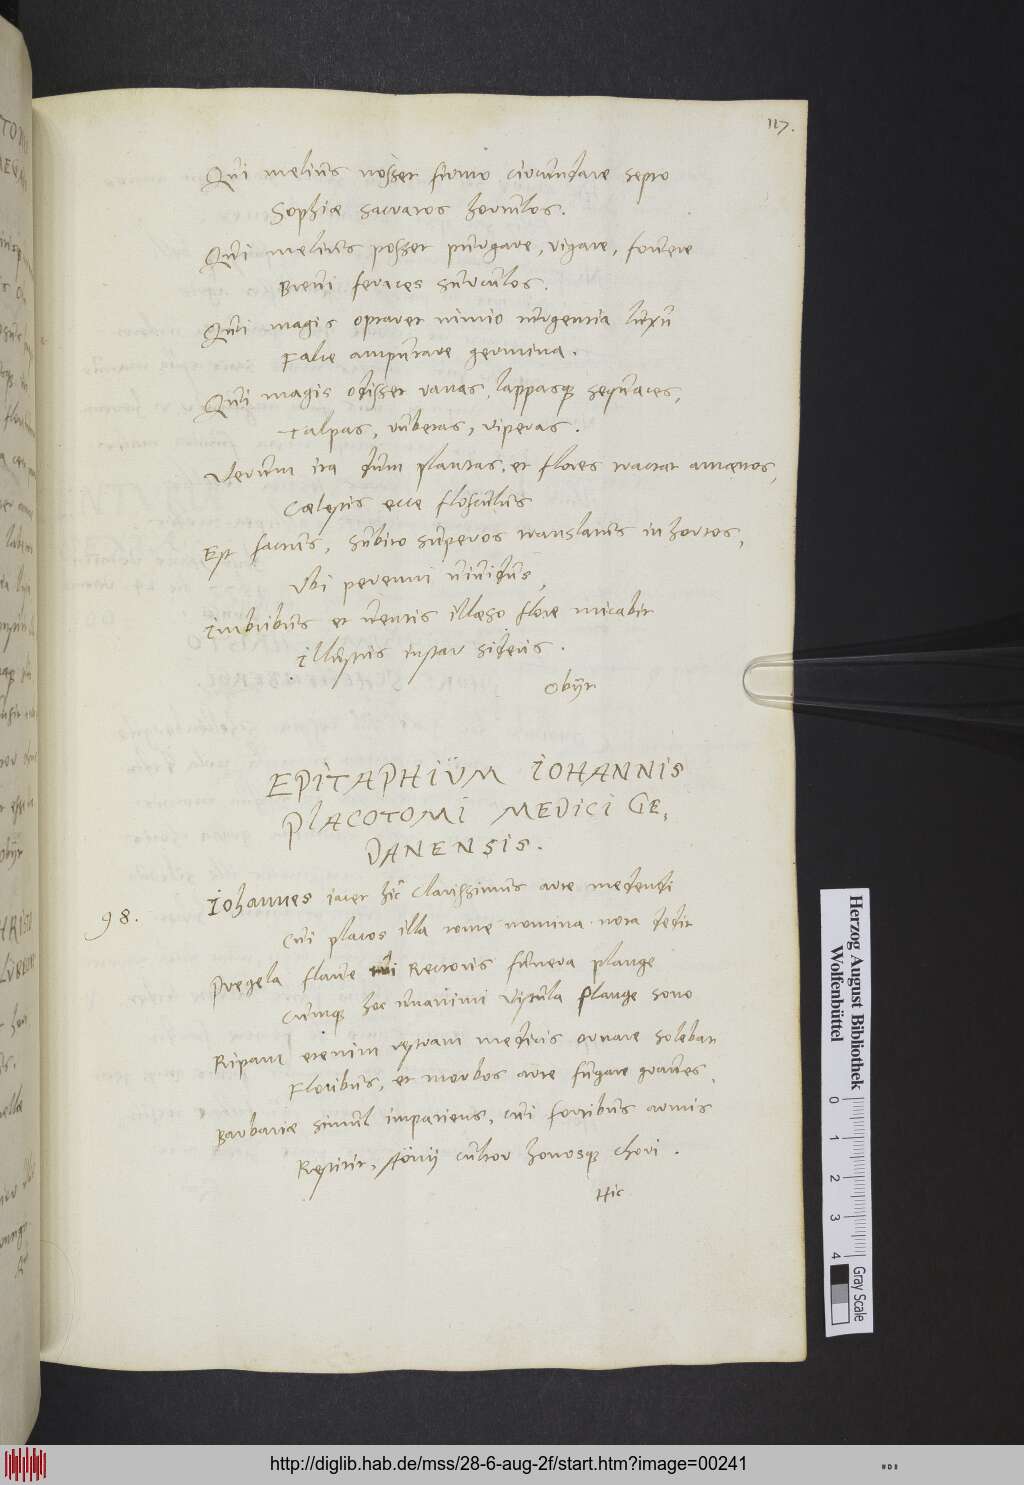 117.
Qui melius nosset firmo circundare septo
Sophiæ sacratos hortulos.
Qui melius posset purgare, rigare, fovere
Brevi feraces surculos.
Qui magis optaret nimio turgentia luxu
Falce amputare germina.
Qui magis odisset vanas, lappasque sequaces,
Talpas, rubetas, viperas.
Verum ita dum plantas, et flores tractat amœnos,
Cælestis ecce flosculus
Est factus, subito superos translatus in hortos,
Ubi perenni viuidus,
Imbribus et ventis illæso flore micabit
Illustris instar sideris.
Obijt
EPITAPHIUM IOHANNIS
PLACOTOMI MEDICI GE,
DANENSIS.
98.
Iohannes iacet hîc clarissimus arte medendi
Cui placos illa tome nomina nota dedit
Pregela flaue tui Rectoris funera plange
Cumque hoc unanimi Vistula plange sono
Ripam etenim vestram medicis ornare solebat
Floribus, et morbos arte fugare graves,
Barbariæ simul impatiens, cui fortibus armis
Restitit, Aönij cultor honosque chori.
Hic
Herzog August Bibliothek
Wolfenbüttel
0 1 2 3 4
Gray Scale
http://diglib.hab.de/mss/28-6-aug-2f/start.htm?image=00241